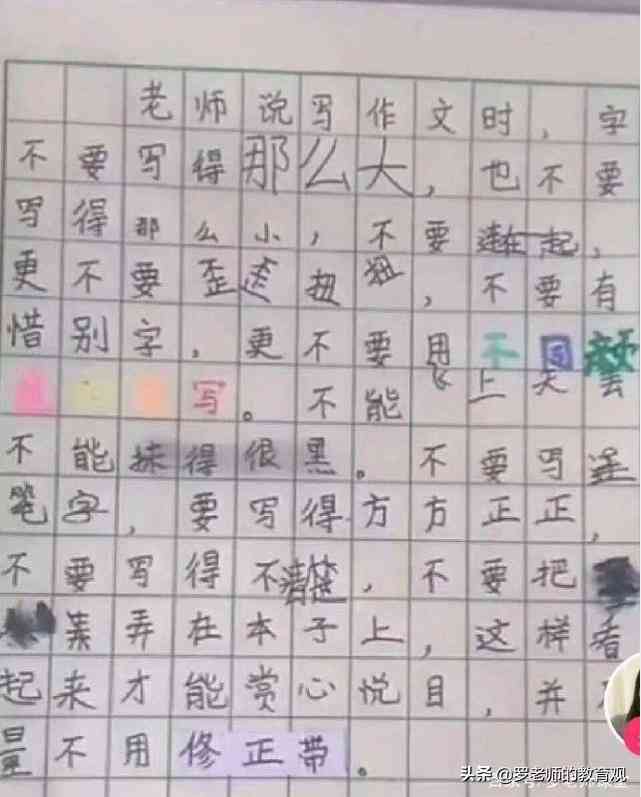 老师说写作文时，字
不要写得那么大，也不要
写得那么小，不要连在一起，
更不要歪歪扭扭，不要有
惜别字。更不要用不同颜
写。不能飞上天去
不能抹得很黑。不要写连
笔字，要写得方方正正，
不要写得不清楚，不要把
弄在本子上，这样看
起来才能赏心悦目，并
量不用修正带。
头条 @罗老师的教育观